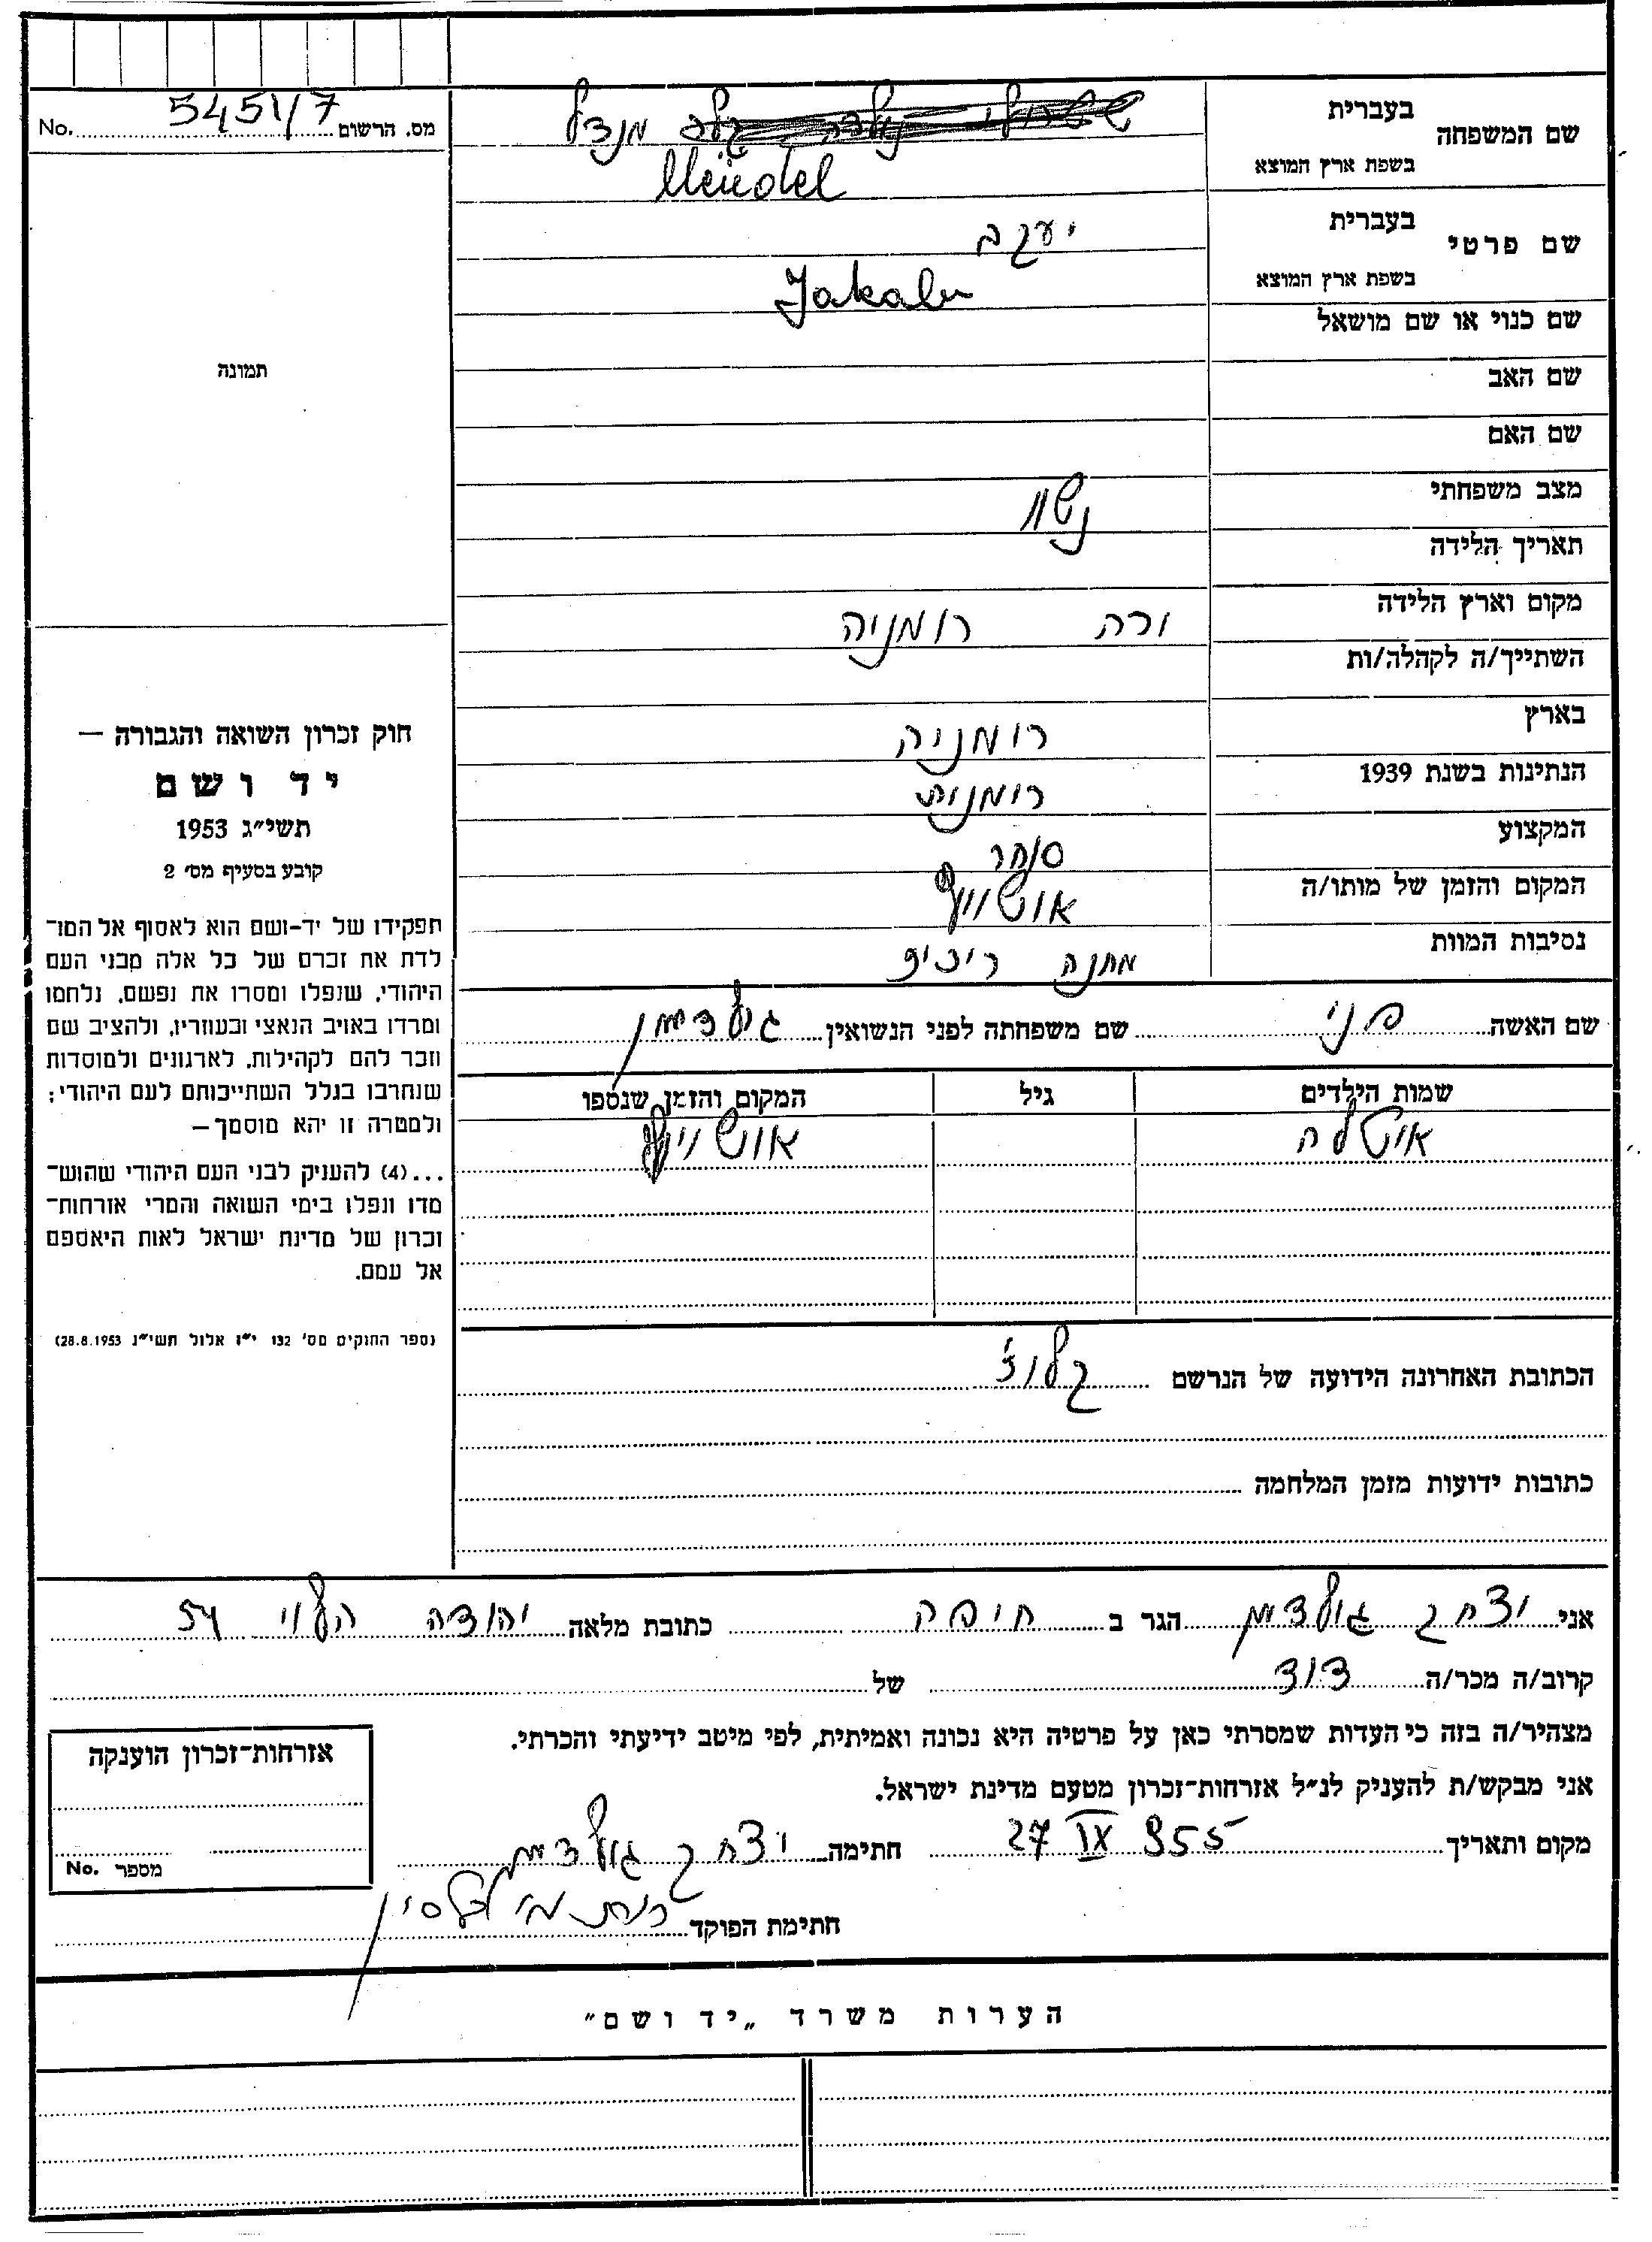 מס. הרשום 5451/7 No.
שם המשפחה
בעברית מנדל
בשפת ארץ המוצא Mendel
שם פרטי
בעברית יעקב
בשפת ארץ המוצא Jakab
שם כנוי או שם מושאל
שם האב
שם האם
מצב משפחתי נשוי
תאריך הלידה
מקום וארץ הלידה רומניה
השתייך/ה לקהלה/ות
בארץ רומניה
הנתינות בשנת 1939 רומנית
המקצוע סוחר
המקום והזמן של מותו/ה אושוויץ
נסיבות המוות מחנה ריכוז
שם האשה פני שם משפחתה לפני הנשואין גולדמן
שמות הילדים גיל המקום והזמן שנספו
אושוויץ
הכתובת האחרונה הידועה של הנרשם קלוז'
כתובות ידועות מזמן המלחמה
תמונה
חוק זכרון השואה והגבורה —
יד ושם
תשי״ג 1953
קובע בסעיף מס׳ 2
תפקידו של יד-ושם הוא לאסוף אל המו־
לדת את זכרם של כל אלה מבני העם
היהודי, שנפלו ומסרו את נפשם, נלחמו
ומרדו באויב הנאצי ובעוזריו, ולהציב שם
וזכר להם לקהילות, לארגונים ולמוסדות
שנחרבו בגלל השתייכותם לעם היהודי;
ולמטרה זו יהא מוסמך—
...(4) להעניק לבני העם היהודי שהוש־
מדו ונפלו בימי השואה והמרי אזרחות־
זכרון של מדינת ישראל לאות היאספם
אל עמם.
(ספר החוקים מס׳ 132 י״ז אלול תשי״ג 28.8.1953)
אני יצחק גולדמן הגר ב חיפה כתובת מלאה יהודה הלוי 54
קרוב/ה מכר/ה דוד של
מצהיר/ה בזה כי העדות שמסרתי כאן על פרטיה היא נכונה ואמיתית, לפי מיטב ידיעתי והכרתי.
אני מבקש/ת להעניק לנ״ל אזרחות־זכרון מטעם מדינת ישראל.
מקום ותאריך 27 IX 955 חתימה יצחק גולדמן
חתימת הפוקד
אזרחות־זכרון הוענקה
מספר No.
הערות משרד „יד ושם״